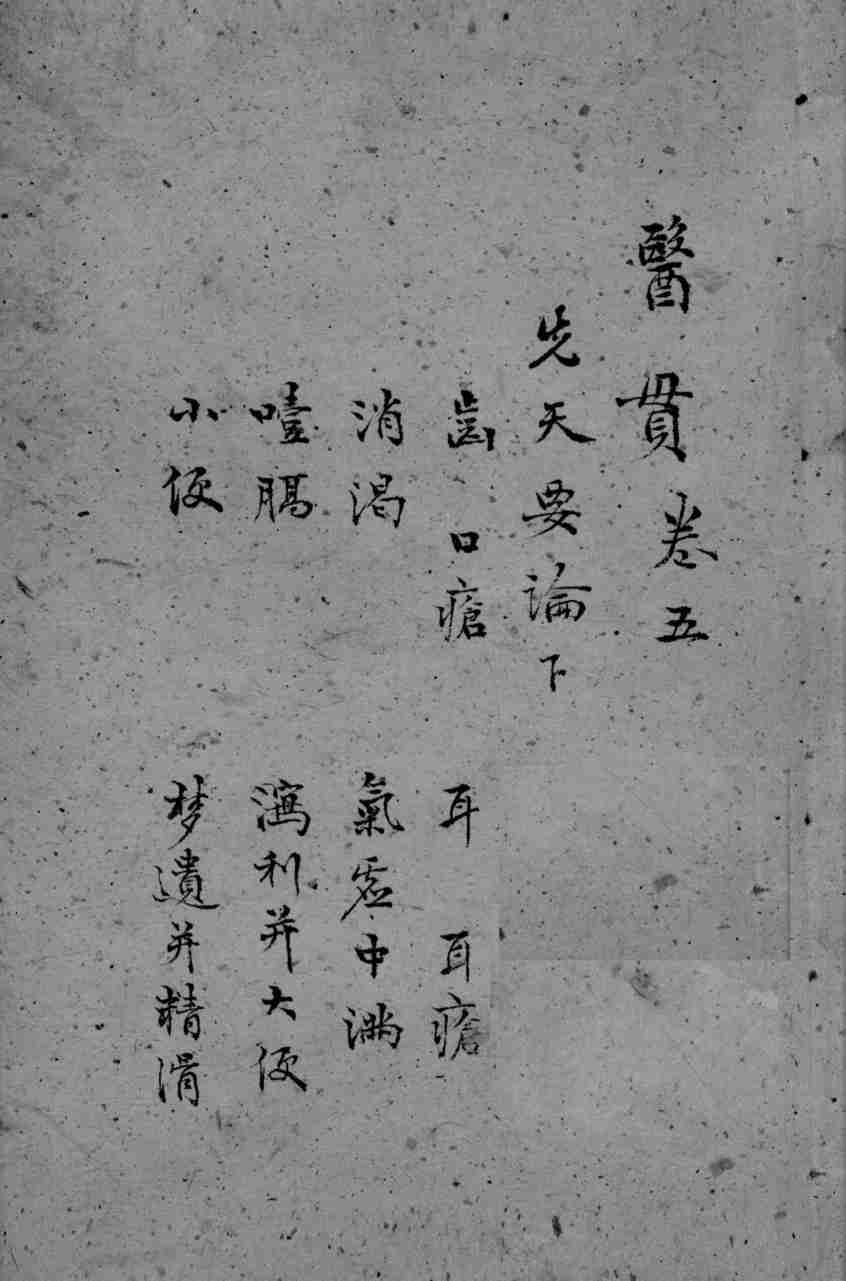 醫貫卷五
先天要論下
齒 口瘡 耳 耳瘡
消渴 氣虛中滿
噎膈 瀉利并大便
小便 梦遺并精滑